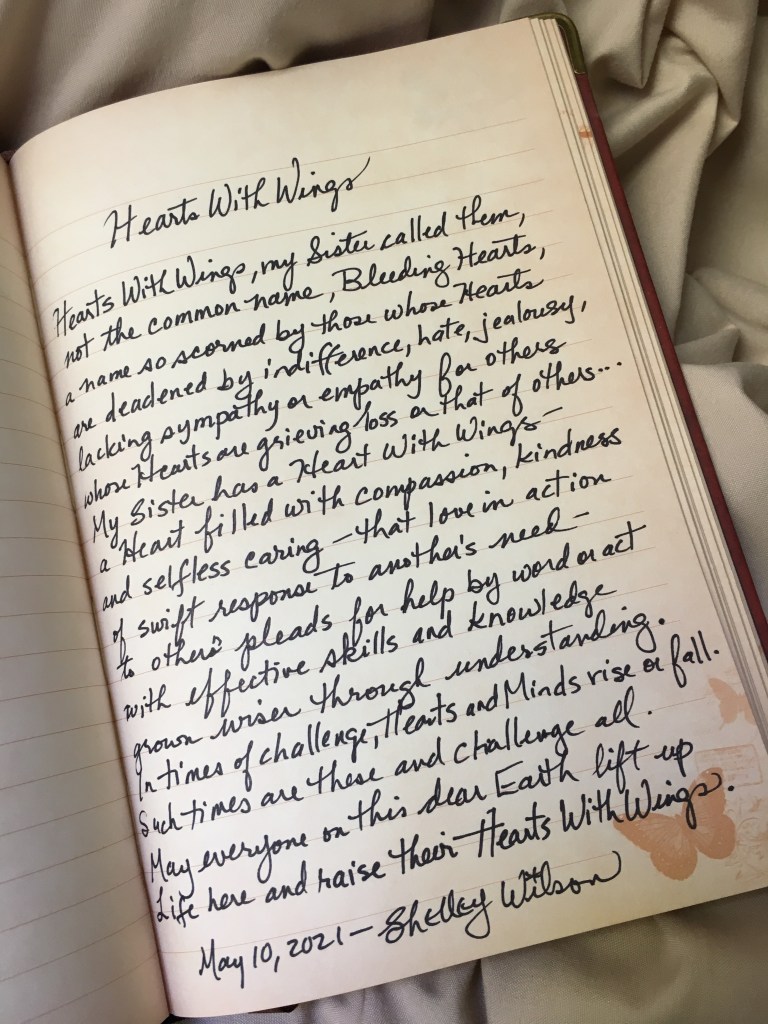 Hearts With Wings
Hearts With Wings, my Sister called them,
not the common name, Bleeding Hearts,
a name so scorned by those whose Hearts
are deadened by indifference, hate, jealousy,
lacking sympathy or empathy for others
whose Hearts are grieving loss or that of others...
My Sister has a Heart With Wings—
a Heart filled with compassion, kindness
and selfless caring — that love in action
of swift response to another's need —
to others' pleads for help by word or act
with effective skills and knowledge
grown wiser through understanding.
In times of challenge, Hearts and Minds rise or fall.
Such times are these and challenge all.
May everyone on this dear Earth lift up
Life here and raise their Hearts With Wings.
May 10, 2021 — Shelley Wilson